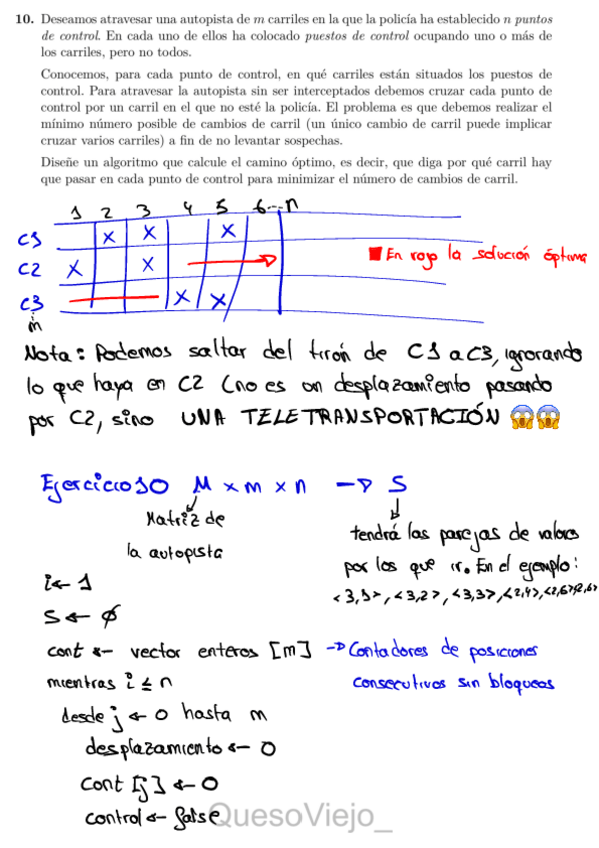 10. Deseamos atravesar una autopista de m carriles en la que la policía ha establecido n puntos
de control. En cada uno de ellos ha colocado puestos de control ocupando uno o más de
los carriles, pero no todos.
Conocemos, para cada punto de control, en qué carriles están situados los puestos de
control. Para atravesar la autopista sin ser interceptados debemos cruzar cada punto de
control por un carril en el que no esté la policía. El problema es que debemos realizar el
mínimo número posible de cambios de carril (un único cambio de carril puede implicar
cruzar varios carriles) a fin de no levantar sospechas.
Diseñe un algoritmo que calcule el camino óptimo, es decir, que diga por qué carril hay
que pasar en cada punto de control para minimizar el número de cambios de carril.
1 2 3 4 5 6...n
C1 X X X
C2 X X
C3 X X
m
En rojo la solución óptima
Nota: Podemos saltar del tirón de C1 a C3, ignorando
lo que haya en C2 (no es un desplazamiento pasando
por C2, sino UNA TELETRANSPORTACIÓN 😱😱
Ejercicio10 M x m x n → S
Matriz de
la autopista
tendrá las parejas de valores
por los que ir. En el ejemplo:
<3,1>, <3,2>, <3,3>, <2,4>,
i ← 1
S ← ∅
cont ← vector enteros [m] → Contadores de posiciones
consecutivos sin bloqueos
mientras i ≤ n
desde j ← 0 hasta m
desplazamiento ← 0
cont [j] ← 0
control ← false
QuesoViejo_